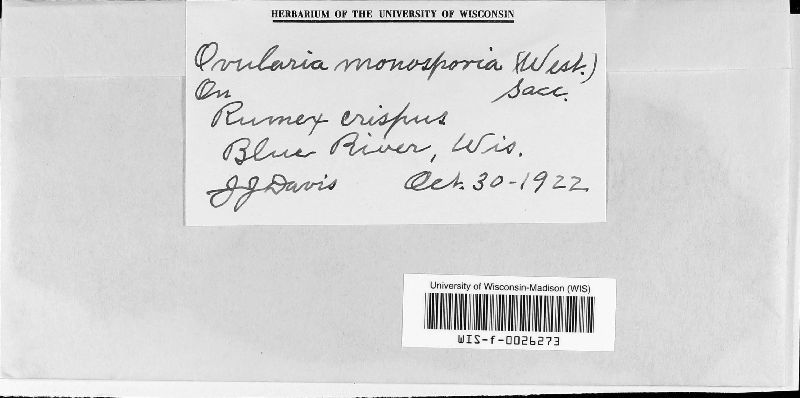 HERBARIUM OF THE UNIVERSITY OF WISCONSIN
Ovularia monosporia (West.)
Sacc.
On
Rumex crispus
Blue River, Wis.
JJDavis Oct. 30-1922
University of Wisconsin-Madison (WIS)
WIS-f-0026273